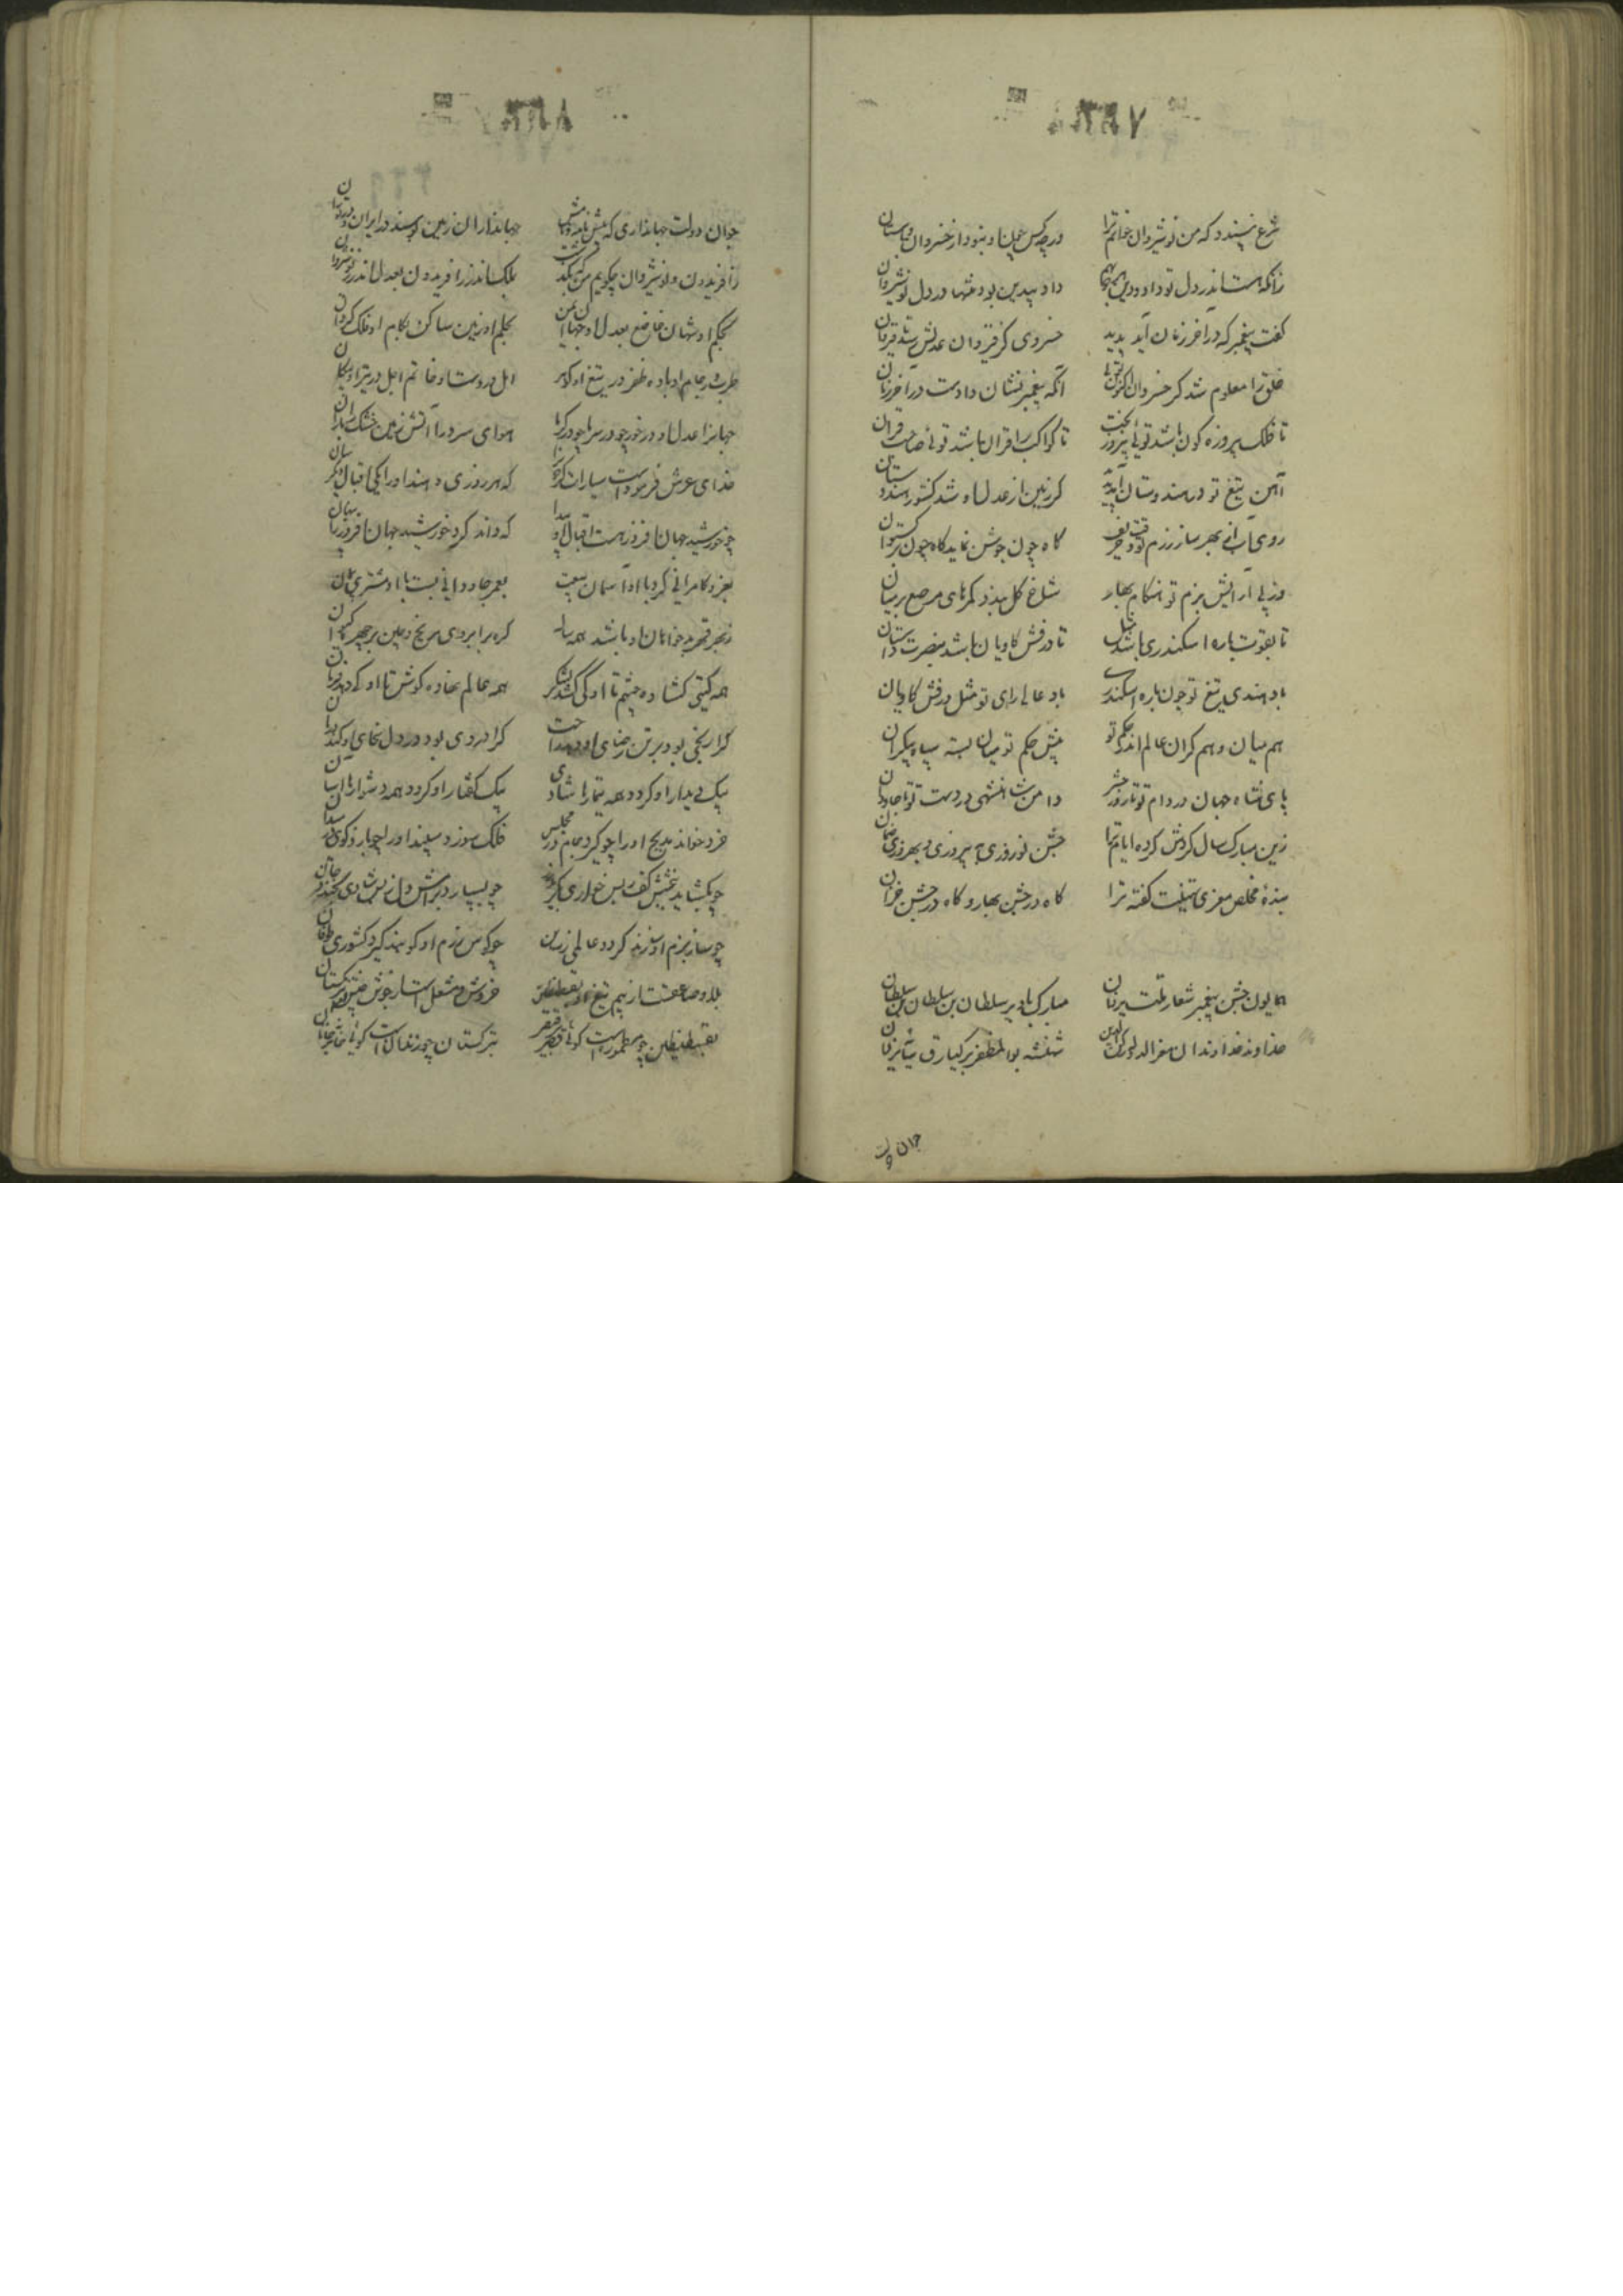 شرع نپسندد که من نوشیروان خوانم ترا ورچه کس چون او نبود از خسروان باستان
زانکه هست اندر دل تو داد و دین هر دو بهم داد بیدین بود تنها در دل نوشیروان
گفت پیغمبر که در آخر زمان آید پدید خسروی کز قیروان عدلش رسد تا قیروان
خلق را معلوم شد کز خسروان اکنون توئی آنکه پیغمبر نشان دادست در آخر زمان
تا فلک پیروزه گون باشد توئی پیروز بخت تا کواکب را قران باشد توئی صاحب قران
آهن تیغ تو در هندوستان آمد پدید کز زمین از عدل او شد کشور هندوستان
روی آب از بهر ساز رزم تو وقت خریف گاه چون جوشن نماید گاه چون برگستوان
وز پی آرایش بزم تو هنگام بهار شاخ گل بندد کمرهای مرصع بر میان
تا بقوت باره اسکندری باشد مثل تا درفش کاویان باشد بنصرت داستان
باد هندی تیغ تو چون باره اسکندری باد عالی رای تو مثل درفش کاویان
هم میان و هم کران عالم اندر حکم تو پیش حکم تو میان بسته سپاه بیکران
پای شاه جهان در دام تو تا روز حشر دامن شاهنشهی در دست تو تا جاودان
زین مبارک سال گردش کرده ایام ترا جشن نوروزی به پیروزی و بهروزی ضمان
بنده مخلص معزی تهنیت گفته ترا گاه در جشن بهار و گاه در جشن خزان
همایون جشن پیغمبر شعار ملت یزدان مبارک باد بر سلطان بن سلطان بن سلطان
خداوند خداوندان معزالدولة رکن الدین شهنشه بوالمظفر برکیارق سایه یزدان
جوان دولت
جوان دولت جهانداری که پیش نامه و نامش جهانداران زمین بوسند در ایران و در توران
ز افریدون و نوشروان چگویم من که بگذشت بملک اندر ز افریدون بعدل اندر ز نوشروان
بحکم او شهان خاضع بعدل او جهان ایمن بحلم او زمین ساکن بکام او فلک گردان
طرب در جام او باده ظفر در تیغ او گوهر امل در دست او خاتم اجل در تیر او پیکان
جهانرا عدل او در خور چو در سرما چو در گرما هوای سرد را آتش زمین خشک را باران
خدای عرش فرمودست سیارات گردون را که هر روزی دهند او را یکی اقبال دیگر سان
چو خورشید جهان افروز هست اقبال او پیدا که داند کرد خورشید جهان افروز را پنهان
بعز و کامرانی کرد با او آسمان بیعت بعمر جاودانی بست با او مشتری پیمان
ز بهر قهر بدخواهان او باشد همه ساله گره بر ابروی مریخ و چین بر چهره کیوان
همه گیتی گشاده چشم تا او کی کشد لشکر همه عالم نهاده گوش تا او کی دهد فرمان
کرا رنجی بود بر تن رضای او دهد راحت کرا دردی بود در دل سخای او کند درمان
بیک دیدار او گردد همه تیمارها شادی بیک گفتار او گردد همه دشوارها آسان
خرد خواند مدیح او را چو گیرد جام در مجلس فلک سوزد سپند او را چو بازد گوی در میدان
چو بگشاید ببخشش کف بس خواری که بیند زر چو بسپارد برامش دل ز بس شادی بخندد جان
چو ساز بزم او سازند گردد عالمی زرین چو کوس رزم او کوبند گیرد کشوری طوفان
بلا و صاعقه است از بیم تیغ او بقسطنطین خروش و مشعله است از جوش جیش او بترکستان
بقسطنطین چو مطمورست گوئی قصر بر قیصر بترکستان چو زندانست گوئی خانه بر خاقان